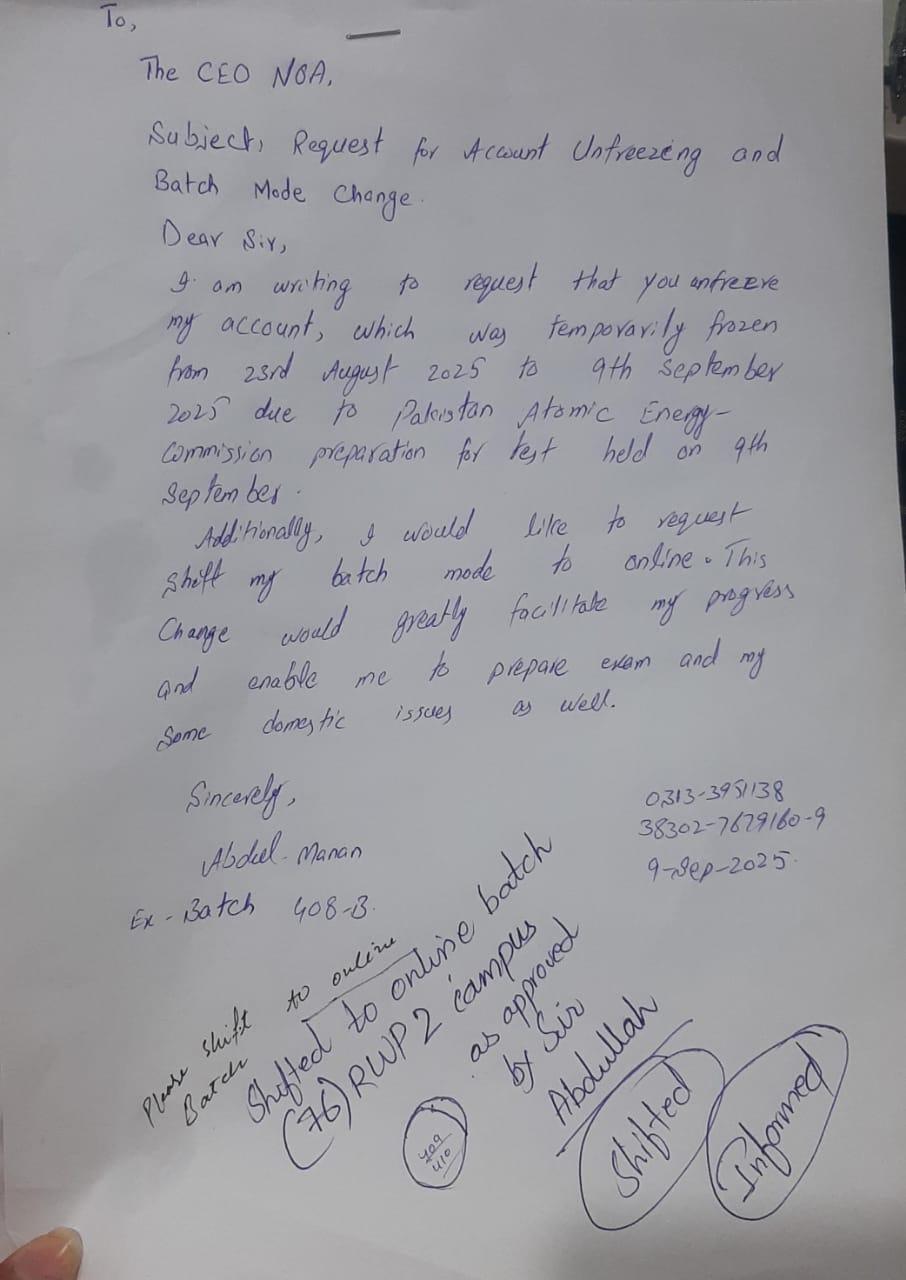 To,
The CEO NOA.
Subject, Request for Account Unfreezing and
Batch Mode Change.
Dear Sir,
I am writing to request that you unfreeze
my account, which was temporarily frozen
from 23rd August 2025 to 9th September
2025 due to Pakistan Atomic Energy-
Commission preparation for test held on 9th
September.
Additionally, I would like to request
shift my batch mode to online. This
Change would greatly facilitate my progress
and enable me to prepare exam and my
some domestic issues as well.
Sincerely,
Abdul-Manan
Ex-Batch 408-B.
0313-3951138
38302-7679160-9
9-Sep-2025.
Please shift to online
Batch
Shifted to online batch
(76) RWP 2 campus
as approved
by Sir
Abdullah
409
410
Shifted
Informed